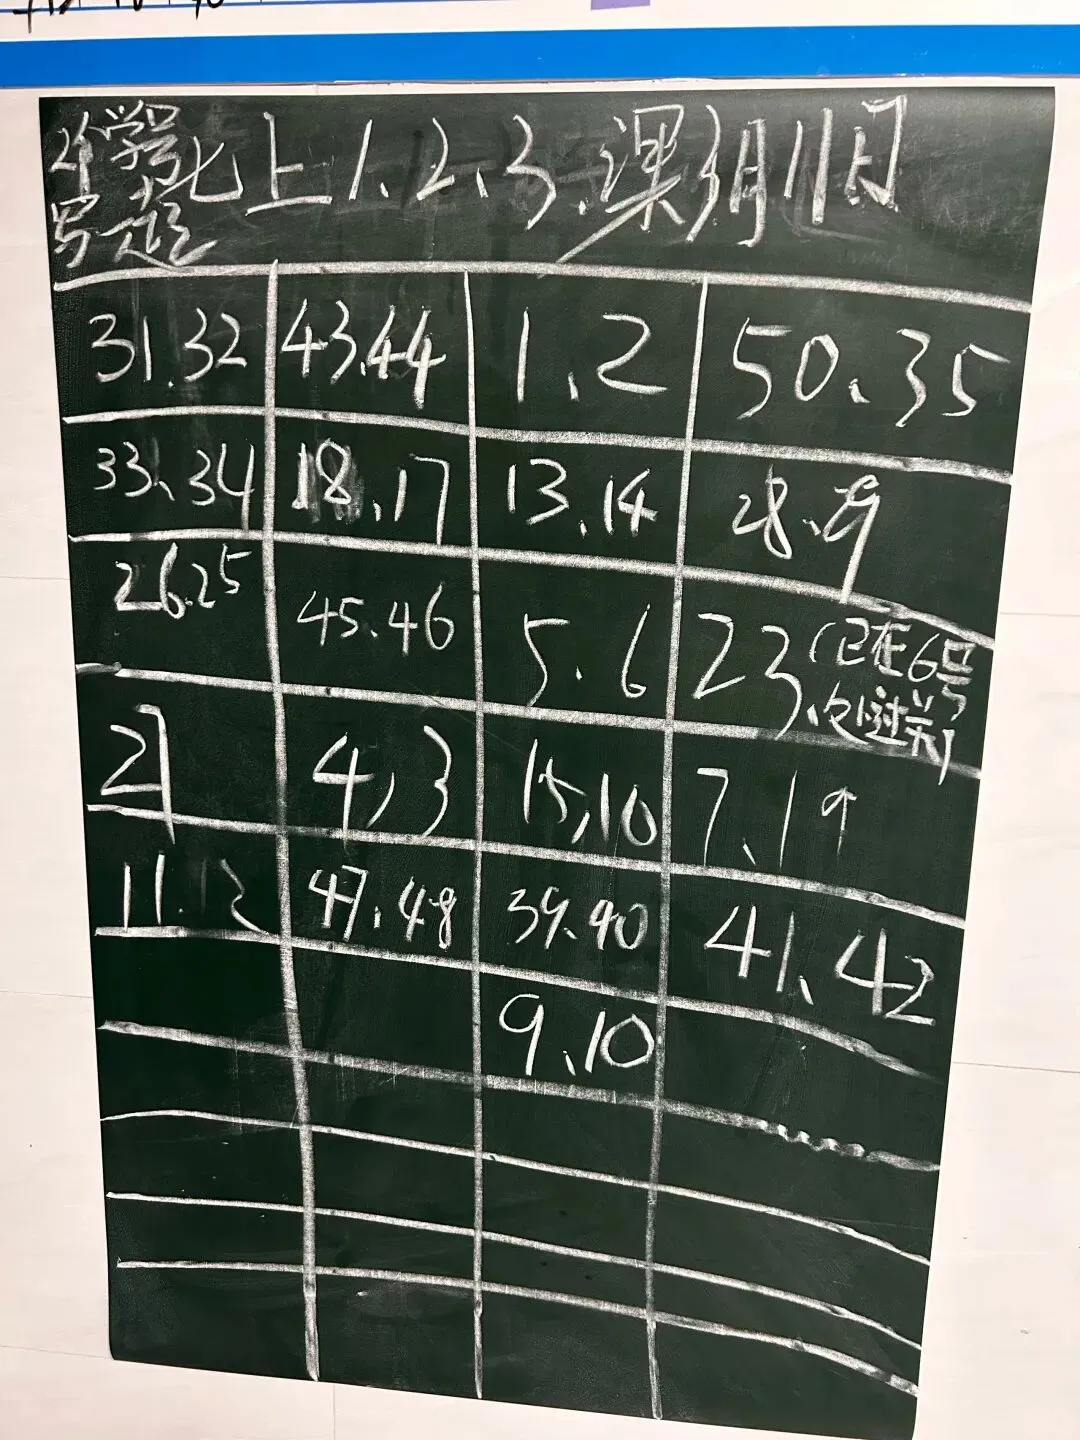 2个学号
写一起
七上1、2、3.课3月11日
31.32 43.44 1、2 50、35
33、34 18、17 13、14 28、29
26.25 45.46 5.6 23(已在6号
处过关)
4,3 15,10 7、19
11.12 47.48 39.40 41、42
9、10